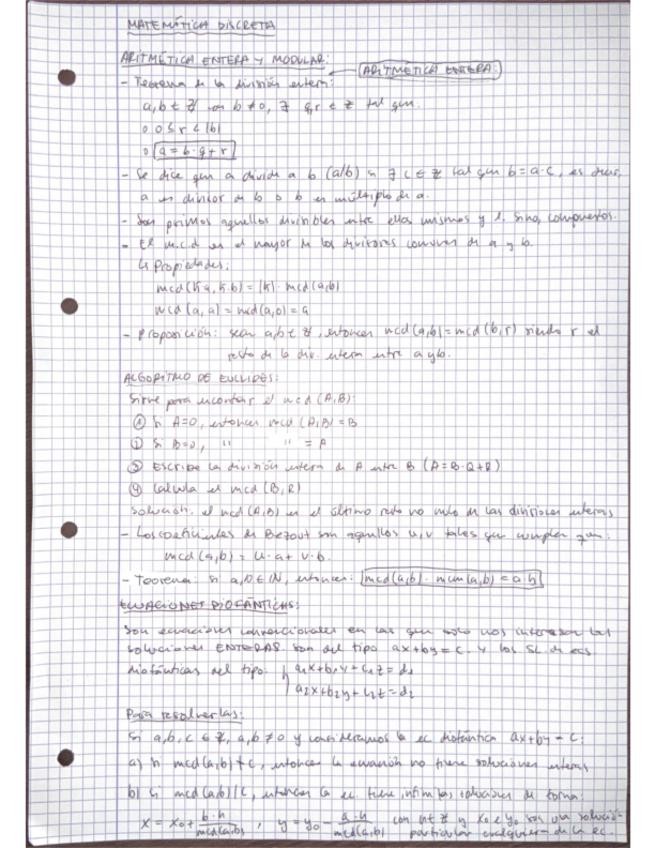 MATEMÁTICA DISCRETA
ARITMÉTICA ENTERA Y MODULAR:
ARITMÉTICA ENTERA:
- Teorema de la división entera:
a, b ∈ Z con b ≠ 0, ∃ q, r ∈ Z tal que:
o 0 ≤ r < |b|
o a = b · q + r
- Se dice que a divide a b (a/b) si ∃ c ∈ Z tal que b = a · c, es decir,
a es divisor de b o b es múltiplo de a.
- Son primos aquellos divisibles entre ellos mismos y 1. Sino, compuestos.
- El m.c.d es el mayor de los divisores comunes de a y b.
↳ Propiedades:
mcd (k·a, k·b) = |k| · mcd (a,b)
mcd (a, a) = mcd (a,0) = a
- Proposición: sean a, b ∈ Z, entonces mcd (a,b) = mcd (b, r) siendo r el
resto de la div. entera entre a y b.
ALGORITMO DE EUCLIDES:
Sirve para encontrar el mcd (A,B):
① Si A=0, entonces mcd (A,B) = B
② Si B=0, " " = A
③ Escribe la división entera de A entre B (A = B·Q+R)
④ Calcula el mcd (B,R)
Solución: el mcd (A,B) es el último resto no nulo de las divisiones enteras
- Los coeficientes de Bezout son aquellos u, v tales que cumplen que:
mcd (a,b) = u · a + v · b.
- Teorema: Si a, b ∈ N, entonces: mcd(a,b) · mcm(a,b) = a·b
ECUACIONES DIOFÁNTICAS:
Son ecuaciones convencionales en las que solo nos interesan las
soluciones ENTERAS. Son del tipo ax+by = c. Y los SL de ecs
diofánticas del tipo: { a₁x + b₁y + c₁z = d₁
a₂x + b₂y + c₂z = d₂
Para resolverlas:
Si a, b, c ∈ Z, a, b ≠ 0 y consideramos la ec diofántica ax + by = c:
a) Si mcd (a,b) ∤ c, entonces la ecuación no tiene soluciones enteras
b) Si mcd (a,b) | c, entonces la ec. tiene infinitas soluciones de forma:
x = x₀ + b·n / mcd(a,b) , y = y₀ - a·n / mcd(a,b) con n ∈ Z y x₀ e y₀ son una solución
particular cualquiera de la ec.